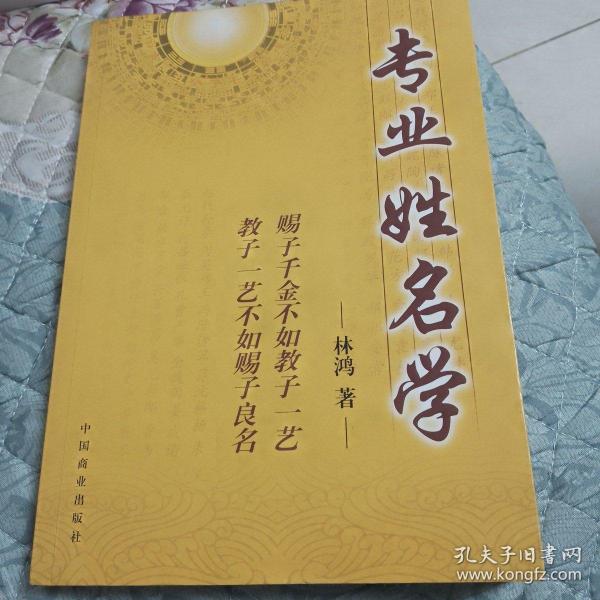 专业姓名学
林鸿 著
赐子千金不如教子一艺
教子一艺不如赐子良名
中国商业出版社
孔夫子旧书网
www.kongfz.com